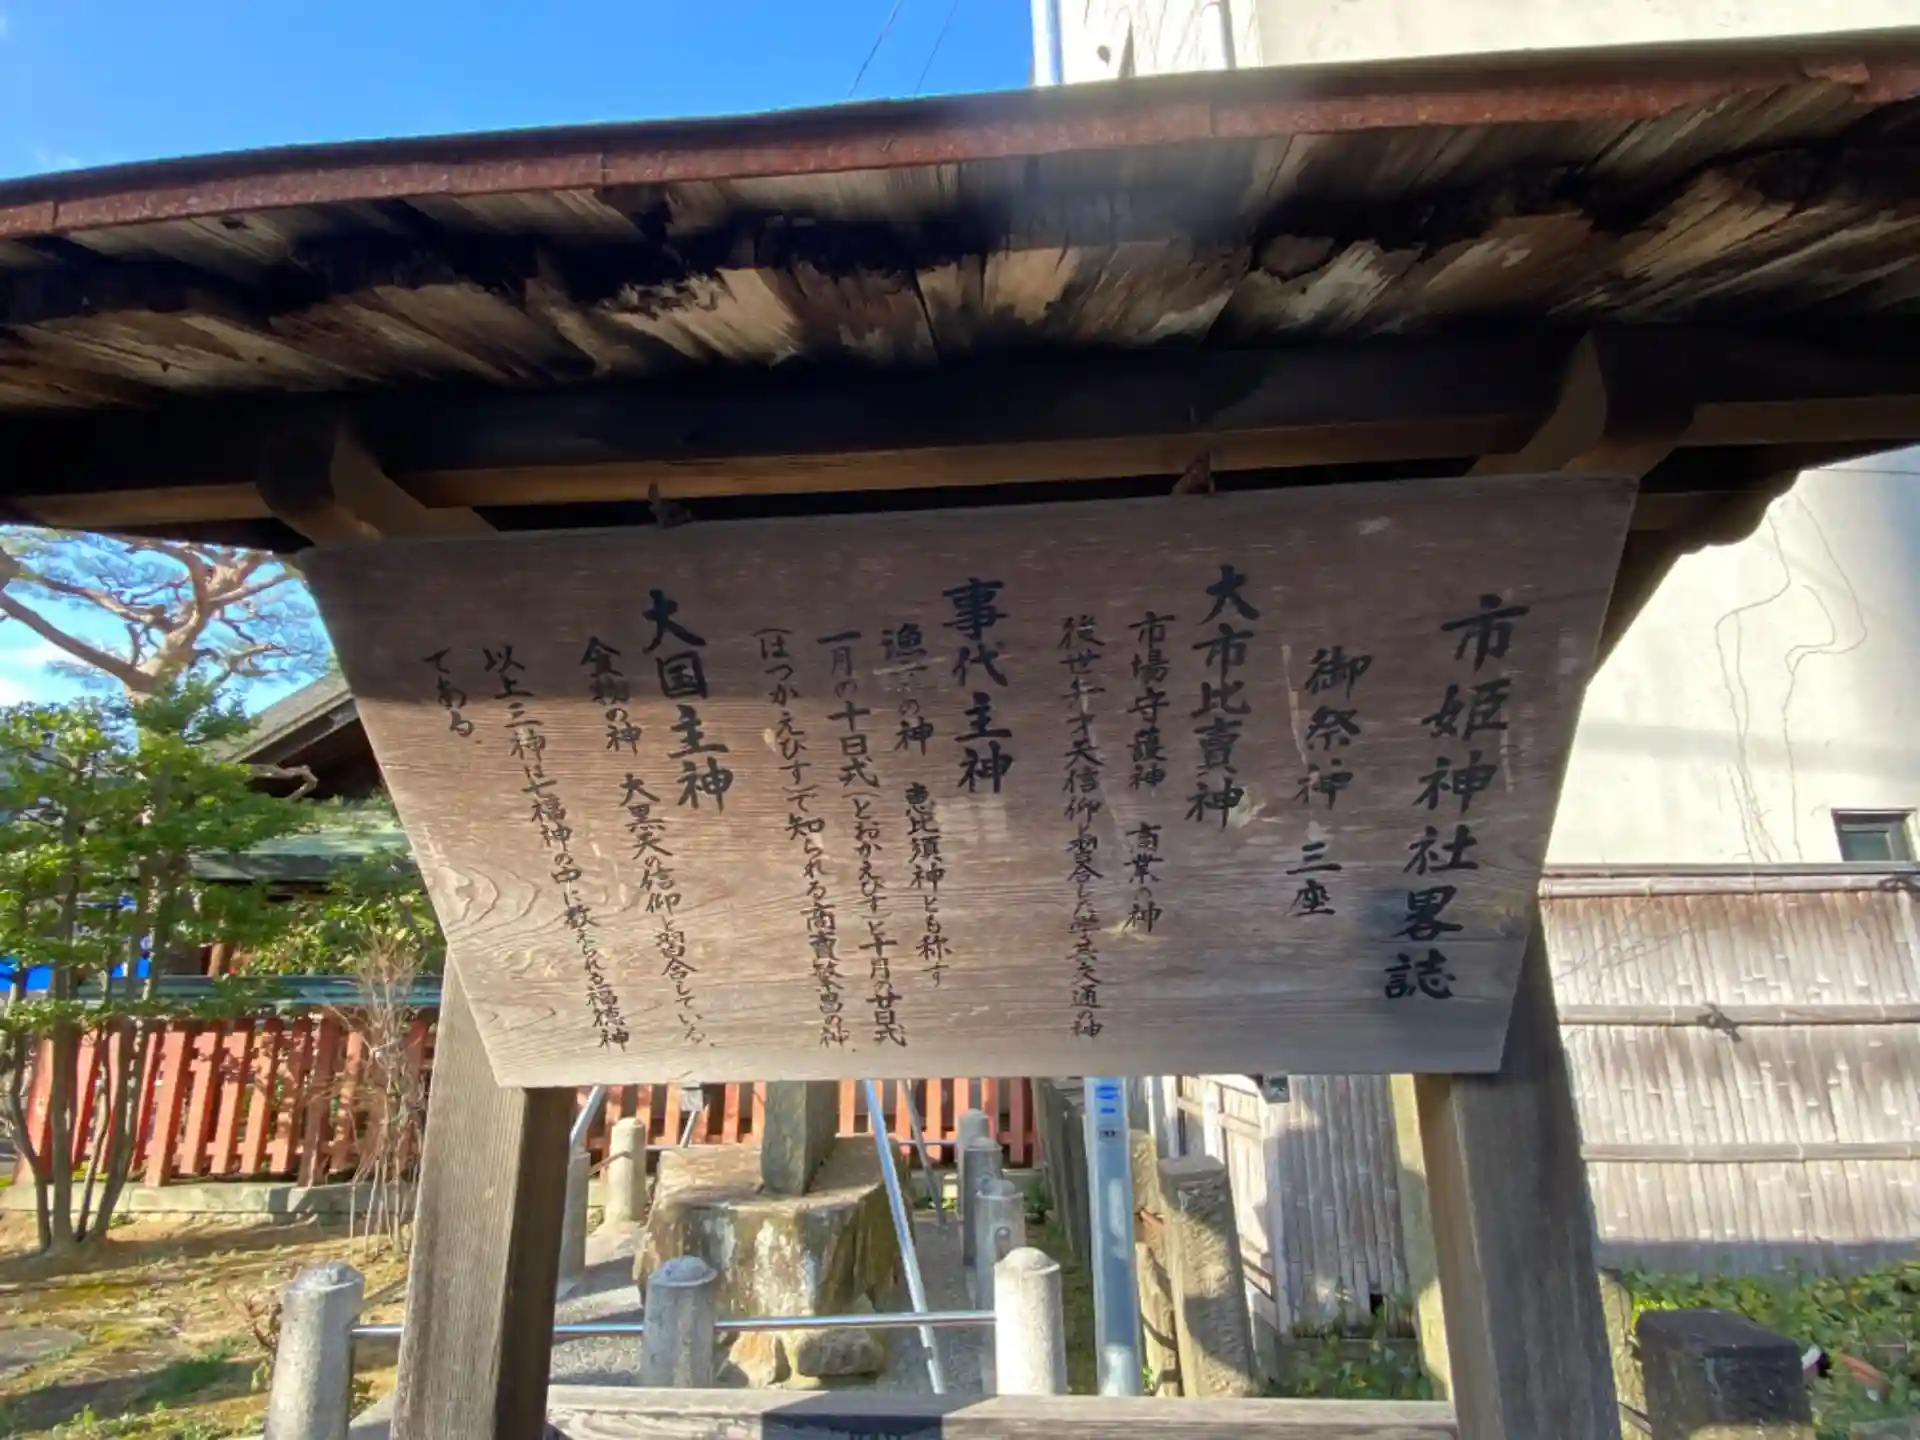 市姫神社畧誌
御祭神 三座
大市比賣神
市場守護神 商業の神
後世弁才天信仰と習合した学芸交通の神
事代主神
漁 の神 恵比須神とも称す
一月の十日式(とおかえびす)と十月の廿日式
(はつかえびす)で知られる商賣繁昌の神.
大国主神
食物の神 大黒天の信仰と習合している.
以上三神は七福神の中に数えられる福徳神
である.